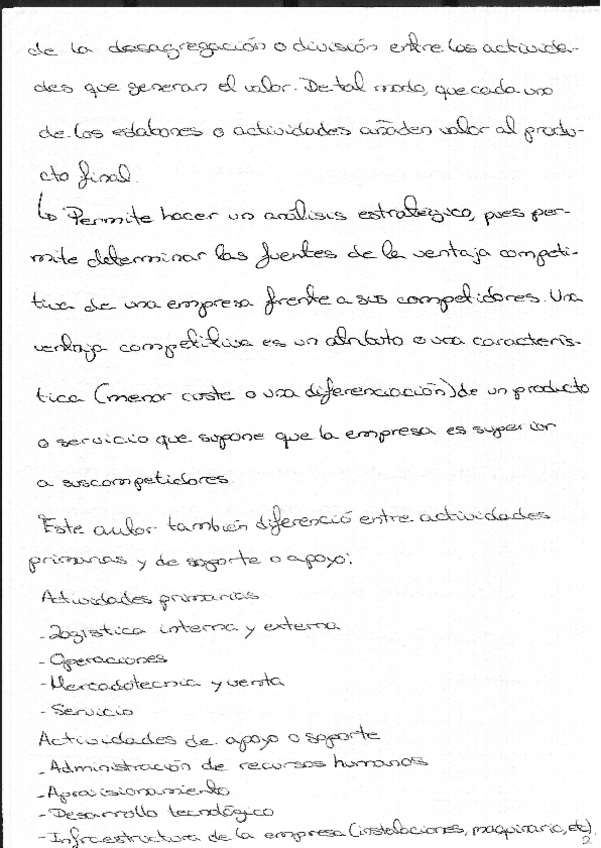 de la desagregación o división entre las activida-
des que generan el valor. De tal modo, que cada uno
de los eslabones o actividades añaden valor al produ-
cto final.
↳ Permite hacer un análisis estratégico, pues per-
mite determinar las fuentes de la ventaja competi-
tiva de una empresa frente a sus competidores. Una
ventaja competitiva es un atributo o una caracterís-
tica (menor coste o una diferenciación) de un producto
o servicio que supone que la empresa es superior
a sus competidores.
Este autor también diferenció entre actividades
primarias y de soporte o apoyo:
Actividades primarias
- Logística interna y externa
- Operaciones
- Mercadotecnia y venta
- Servicio
Actividades de apoyo o soporte
- Administración de recursos humanos
- Aprovisionamiento
- Desarrollo tecnológico
- Infraestructura de la empresa (instalaciones, maquinaria, etc).
2